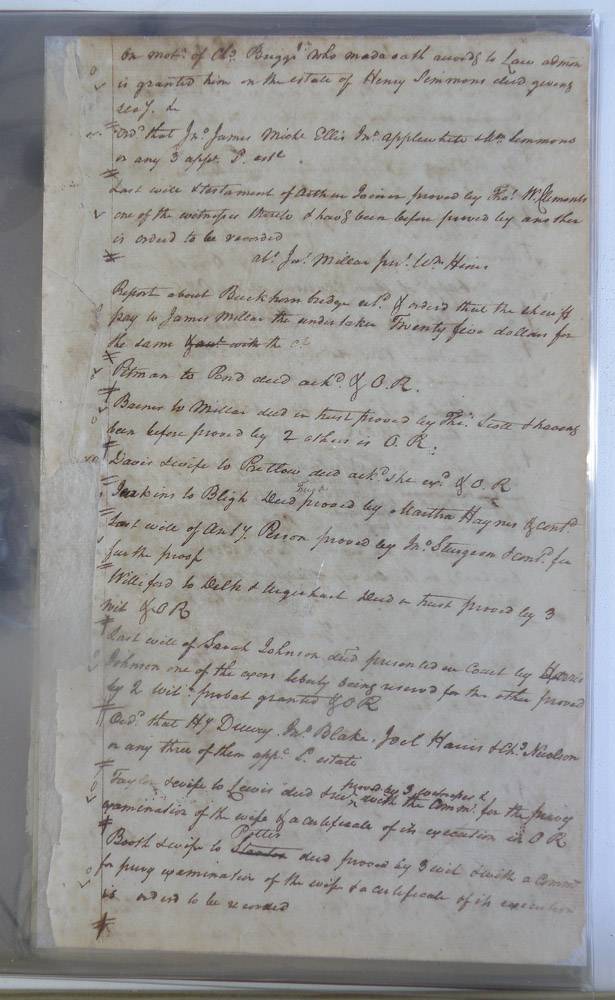 On motn. of Chs. Briggs who made oath accordg to Law admon
is granted him on the estate of Henry Simmons decd giving
secy. &
Ord. that Jno. James Michl Ellis Jno. Applewhite & Wm. Simmons
or any 3 appr. P. este
Last will & testament of Arthur Joiner proved by Thos. W. Clements
one of the witnesses thereto & havg been before proved by another
is orderd to be recorded
abt. Jas. Millar prt. Wm Hines
Report about Buckhorn bridge retd. & orderd that the sheriff
pay to James Millar the undertaker Twenty five dollars for
the same & with the
Pitman to Pond deed ackd. & O.R.
Barnes to Millar deed in trust proved by Thos. & having
been before proved by 2 others is O.R.
Davis & wife to Pretlow deed ackd. she exd. & O R
Jenkins to Bligh Deed proved by Martha Haynes & contd.
Last will of Anty. Person proved by Jno. Sturgeon & contd. for
further proof
Williford to Delk & Urquhart Deed in trust proved by 3
wit & O R
Last will of Sarah Johnson decd. presented in Court by Harris
Johnson one of the exors liberty being reserved for the other proved
by 2 wit: probat granted & O R
Ord. that Hy Drewry. Jno. Blake, Joel Harris & Chs. Neelson
or any three of them appr. P. estate
Taylor & wife to Lewis deed proved by 3 witnesses &
with the Commn. for the privy
examination of the wife & a certificate of its execution is O R
Booth & wife to Potter deed proved by 3 wit & with a Commn
for privy examination of the wife & a certificate of its execution
is orderd to be recorded